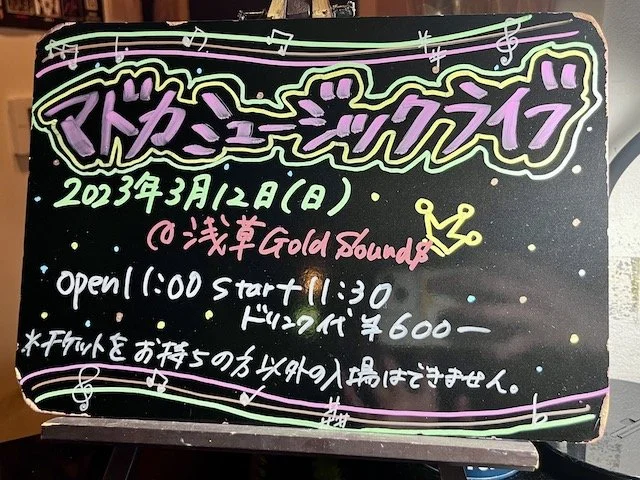 マドカミュージックライブ
2023年3月12日(日)
@浅草Gold Sounds
open11:00 start11:30
ドリンク代 ¥600ー
*チケットをお持ちの方以外の入場はできません。